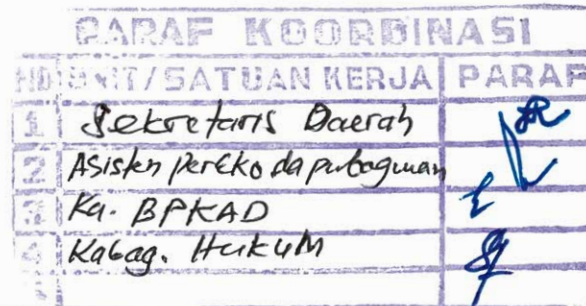 PARAF KOORDINASI
NO UNIT/SATUAN KERJA PARAF
1 Sekretaris Daerah
2 Asisten perEko da
3 Ka. BPKAD
4 Kabag. HukuM
5